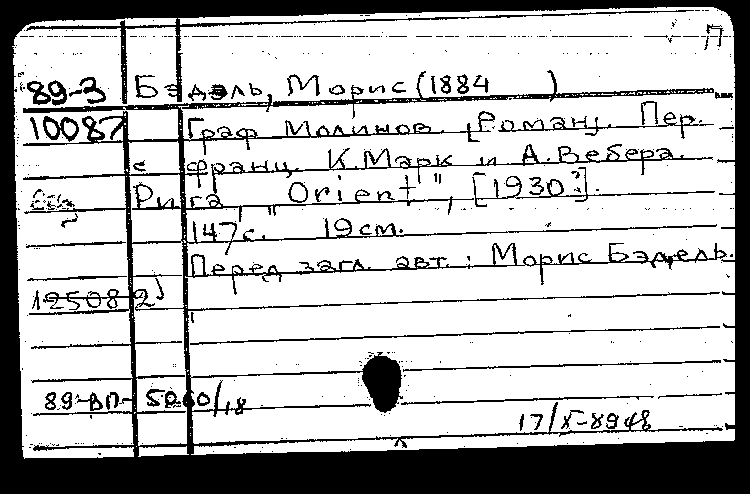 П
89-3 Бэдэль, Морис (1884 )
10087 Граф Молинов. [Роман]. Пер.
с франц. К.Марк и А.Вебера.
Рига, "Orient", [1930?].
147с. 19см.
Перед загл. авт.: Морис Бэдель.
125082
89-ВП- 5060/18
17/X-8948